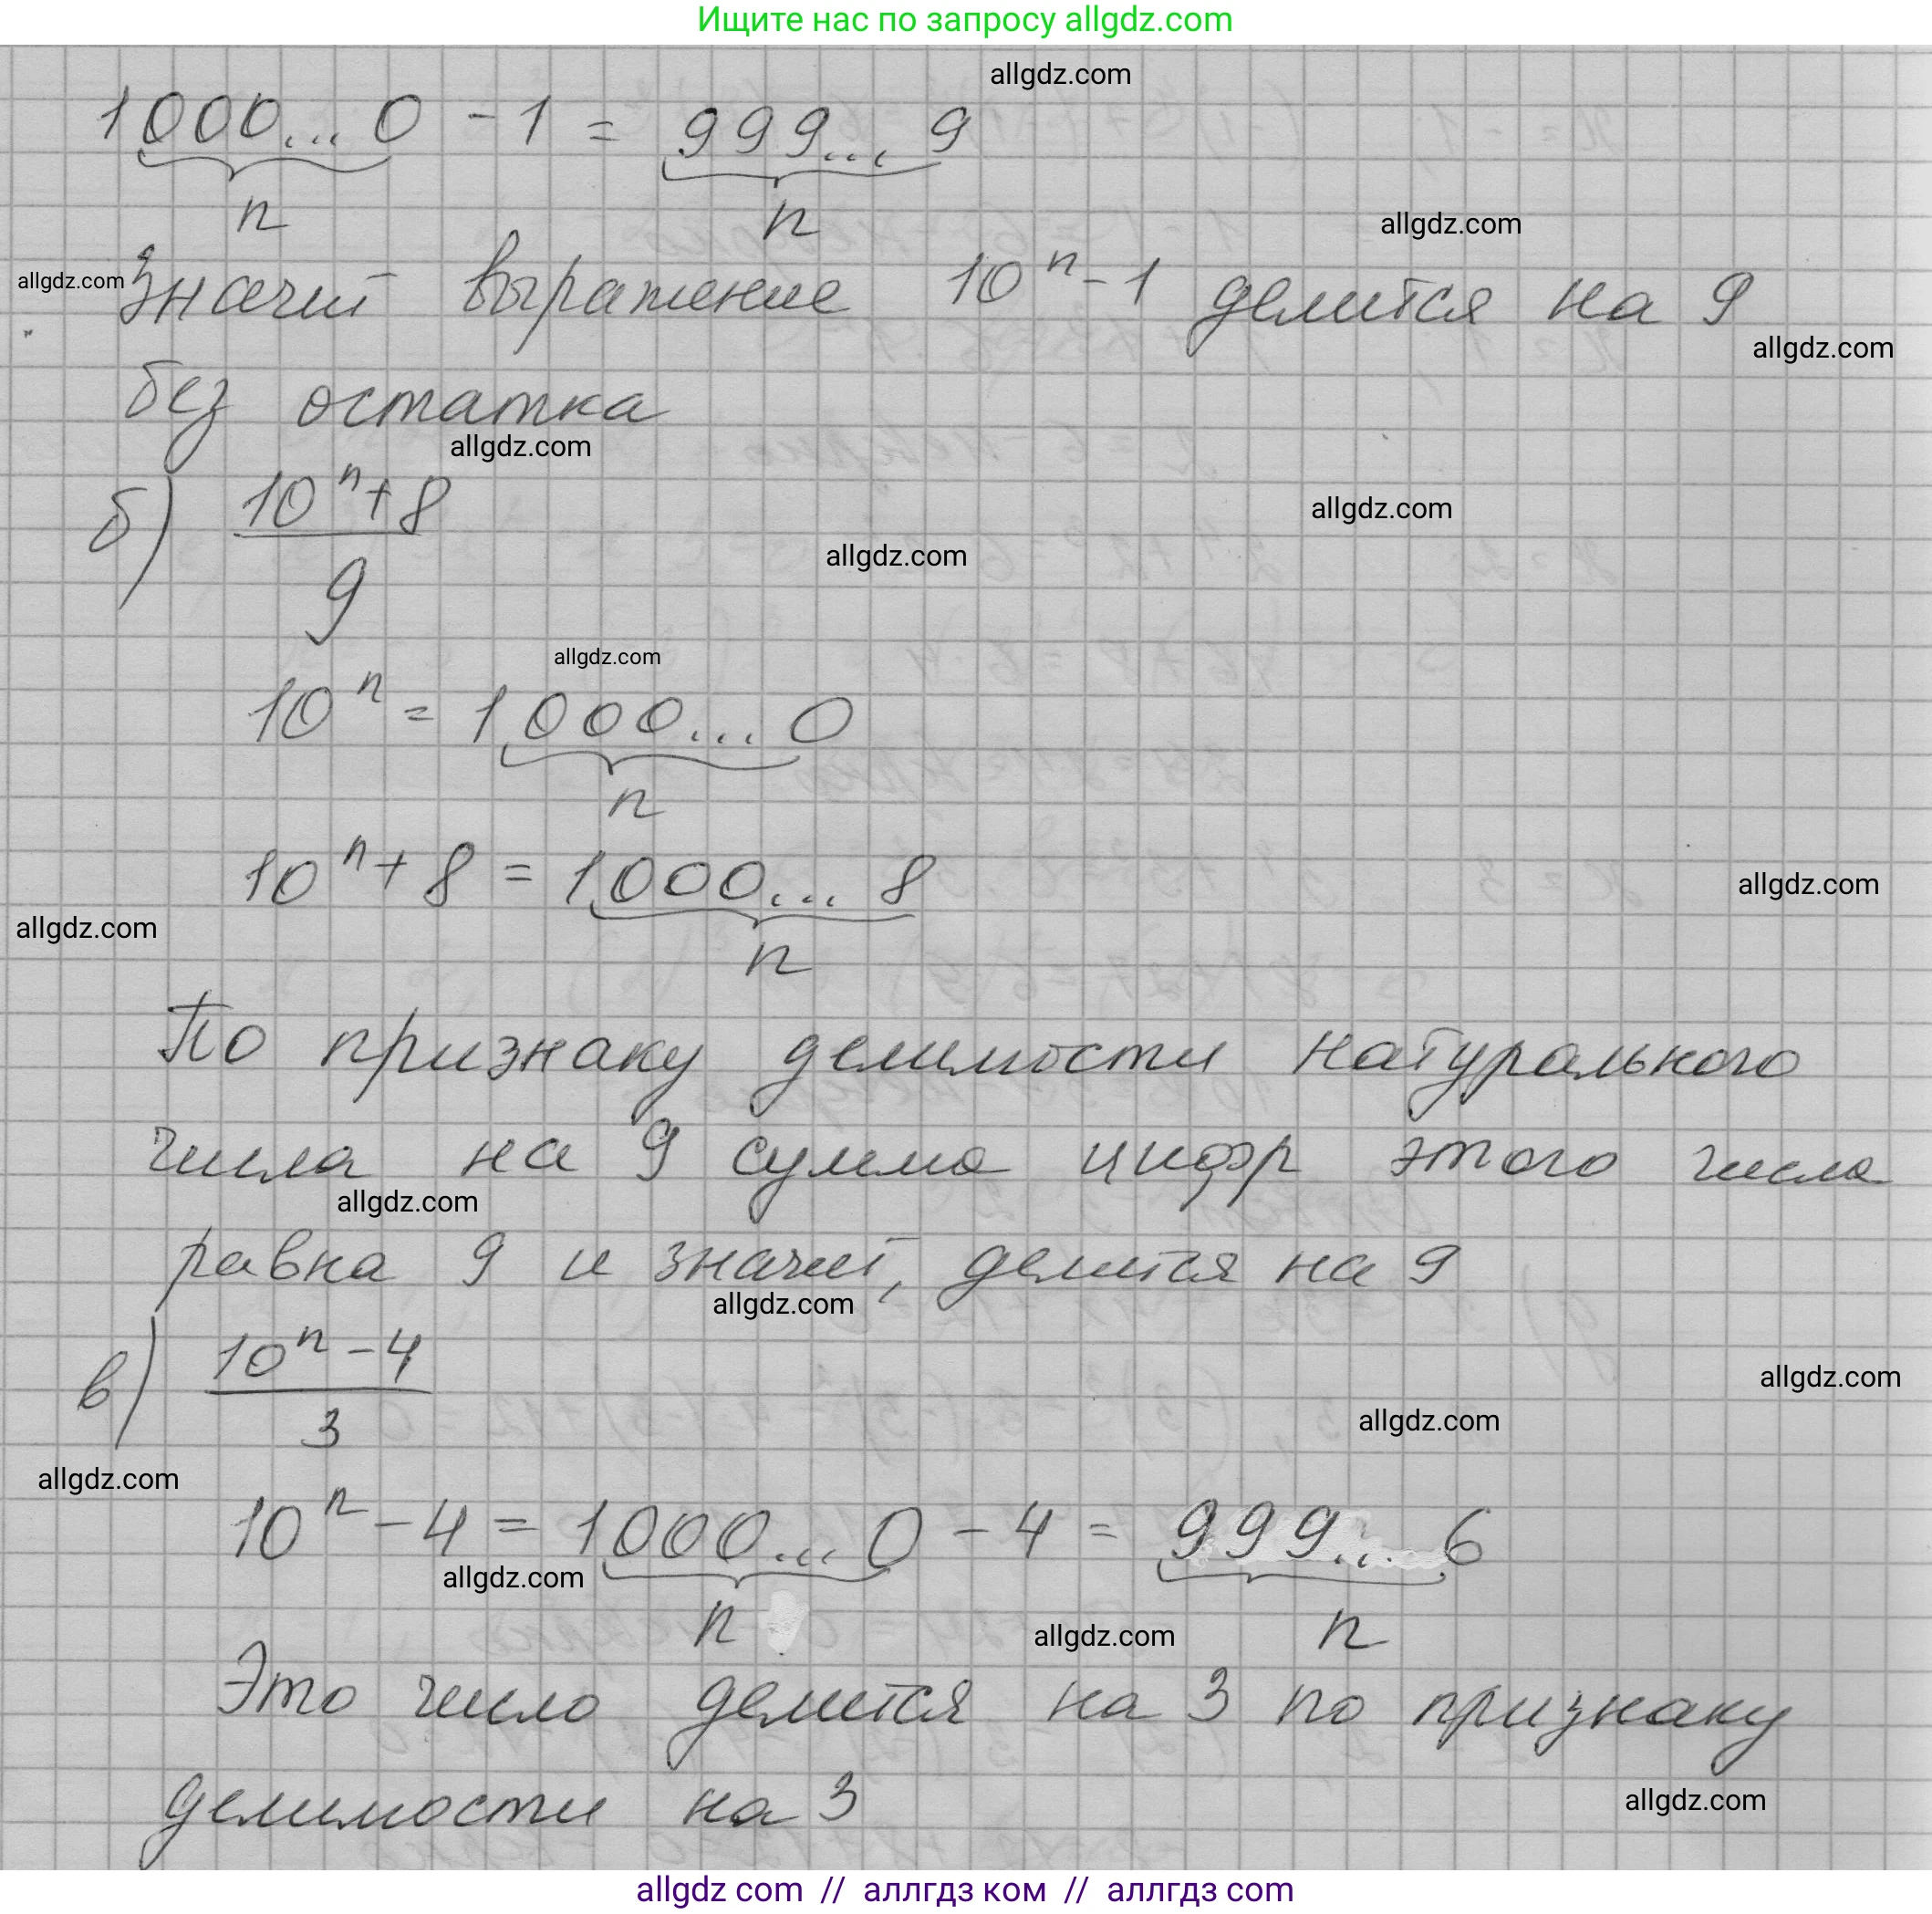 Ищите нас по запросу allgdz.com
allgdz.com
1000...0 - 1 = 999...9
n n
allgdz.com
allgdz.com
Значит выражение 10ⁿ - 1 делится на 9
allgdz.com
без остатка
allgdz.com
б) 10ⁿ + 8
allgdz.com
9
allgdz.com
allgdz.com
10ⁿ = 1000...0
n
10ⁿ + 8 = 1000...8
allgdz.com
allgdz.com
n
По признаку делимости натурального
числа на 9 сумма цифр этого числа
allgdz.com
равна 9 и значит, делится на 9
allgdz.com
в) 10ⁿ - 4
3
allgdz.com
allgdz.com
allgdz.com
10ⁿ - 4 = 1000...0 - 4 = 999...6
allgdz.com
n n
allgdz.com
Это число делится на 3 по признаку
делимости на 3
allgdz.com
allgdz com // аллгдз ком // аллгдз com